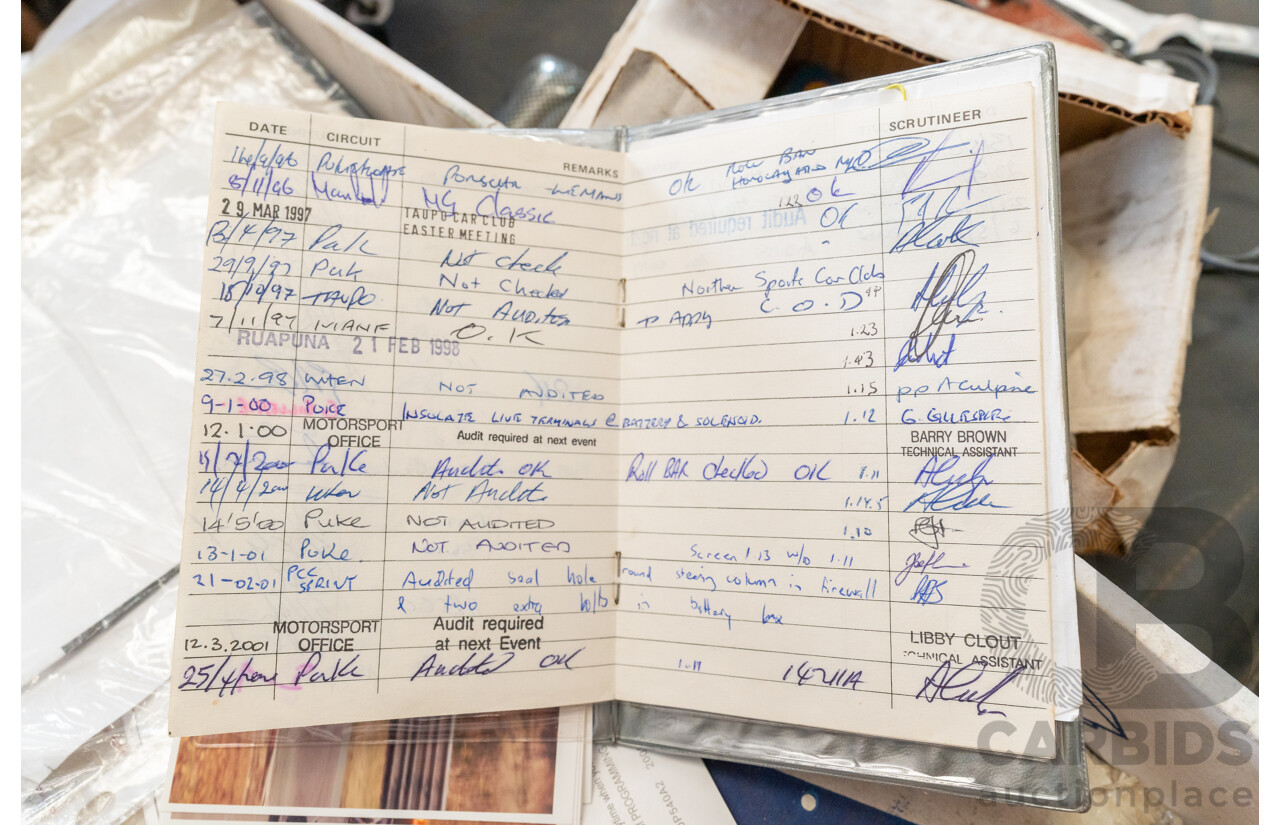 DATE CIRCUIT REMARKS SCRUTINEER
14/9/96 PORSCHE OK ROLL BAR
5/11/96 Manfeild MG Classic 1.22 OK
29 MAR 1997 TAUPO CAR CLUB OK
EASTER MEETING
13/4/97 Puk Not check
29/9/97 Puk Not Checked Northern Sports Car Club
18/10/97 TAUPO Not Audited TO APPLY C.O.D
7/11/97 MANF O.K 1.23
RUAPUNA 21 FEB 1998 1.43
27.2.98 WHEN NOT AUDITED 1.15 pp A Culpine
9-1-00 PUKE INSULATE LIVE TERMINALS @ BATTERY & SOLENOID. 1.12 G. GILLESPIE
12.1:00 MOTORSPORT OFFICE Audit required at next event BARRY BROWN
TECHNICAL ASSISTANT
Pukke Audit OK Roll BAR checked OK 1.11
14/4/200 When Not Audit 1.14.5
14'5'00 PUKE NOT AUDITED 1.10
13-1-01 PUKE NOT AUDITED Screen 1.13 w/o 1.11
21-02-01 PCC SPRINT Audited seal hole round steering column in firewall
& two extra bolts in battery box
12.3.2001 MOTORSPORT OFFICE Audit required at next Event LIBBY CLOUT
TECHNICAL ASSISTANT
25/4/ Pukke Audited OK 1.11 14211A
CARBIDS
auctionplace